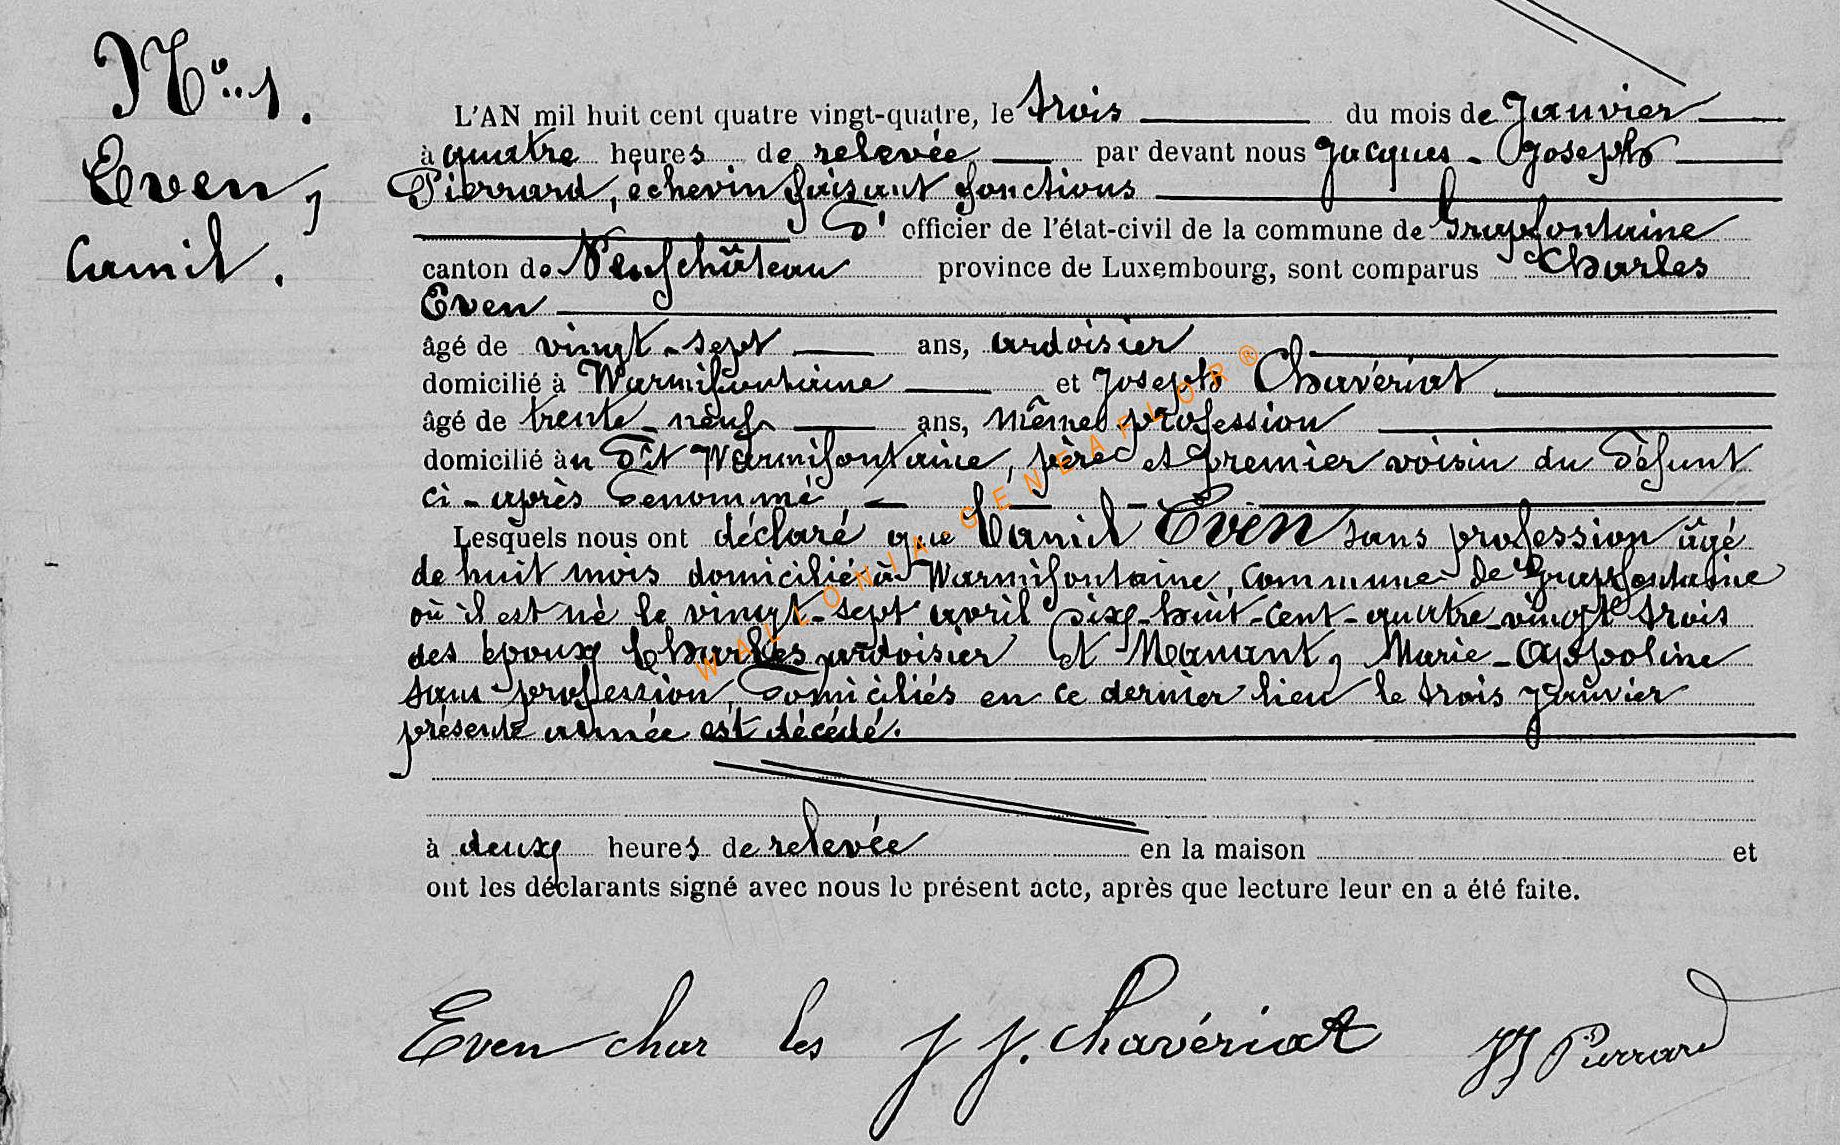 N° 1.
Even,
Camil.
L'AN mil huit cent quatre vingt-quatre, le trois du mois de Janvier
à quatre heures de relevée, par devant nous Jacques-Joseph
Pierrard, échevin faisant fonctions
d' officier de l'état-civil de la commune de Grapfontaine
canton de Neufchâteau province de Luxembourg, sont comparus Charles
Even
âgé de vingt-sept ans, ardoisier
domicilié à Warmifontaine et Joseph Chavériat
âgé de trente-neuf ans, même profession
domicilié àu dit Warmifontaine, père et premier voisin du défunt
ci-après dénommé
Lesquels nous ont déclaré que Camil Even sans profession âgé
de huit mois domicilié à Warmifontaine, commune de Grapfontaine
où il est né le vingt-sept avril dix-huit-cent-quatre-vingt trois
des époux Charles ardoisier et Manant, Marie-Appoline
sans profession, domiciliés en ce dernier lieu le trois janvier
présente année est décédé.
à deux heures de relevée en la maison et
ont les déclarants signé avec nous le présent acte, après que lecture leur en a été faite.
Even char les J J. Chavériat JJ Pierrard
WALLONIA-GENEAFLOR®